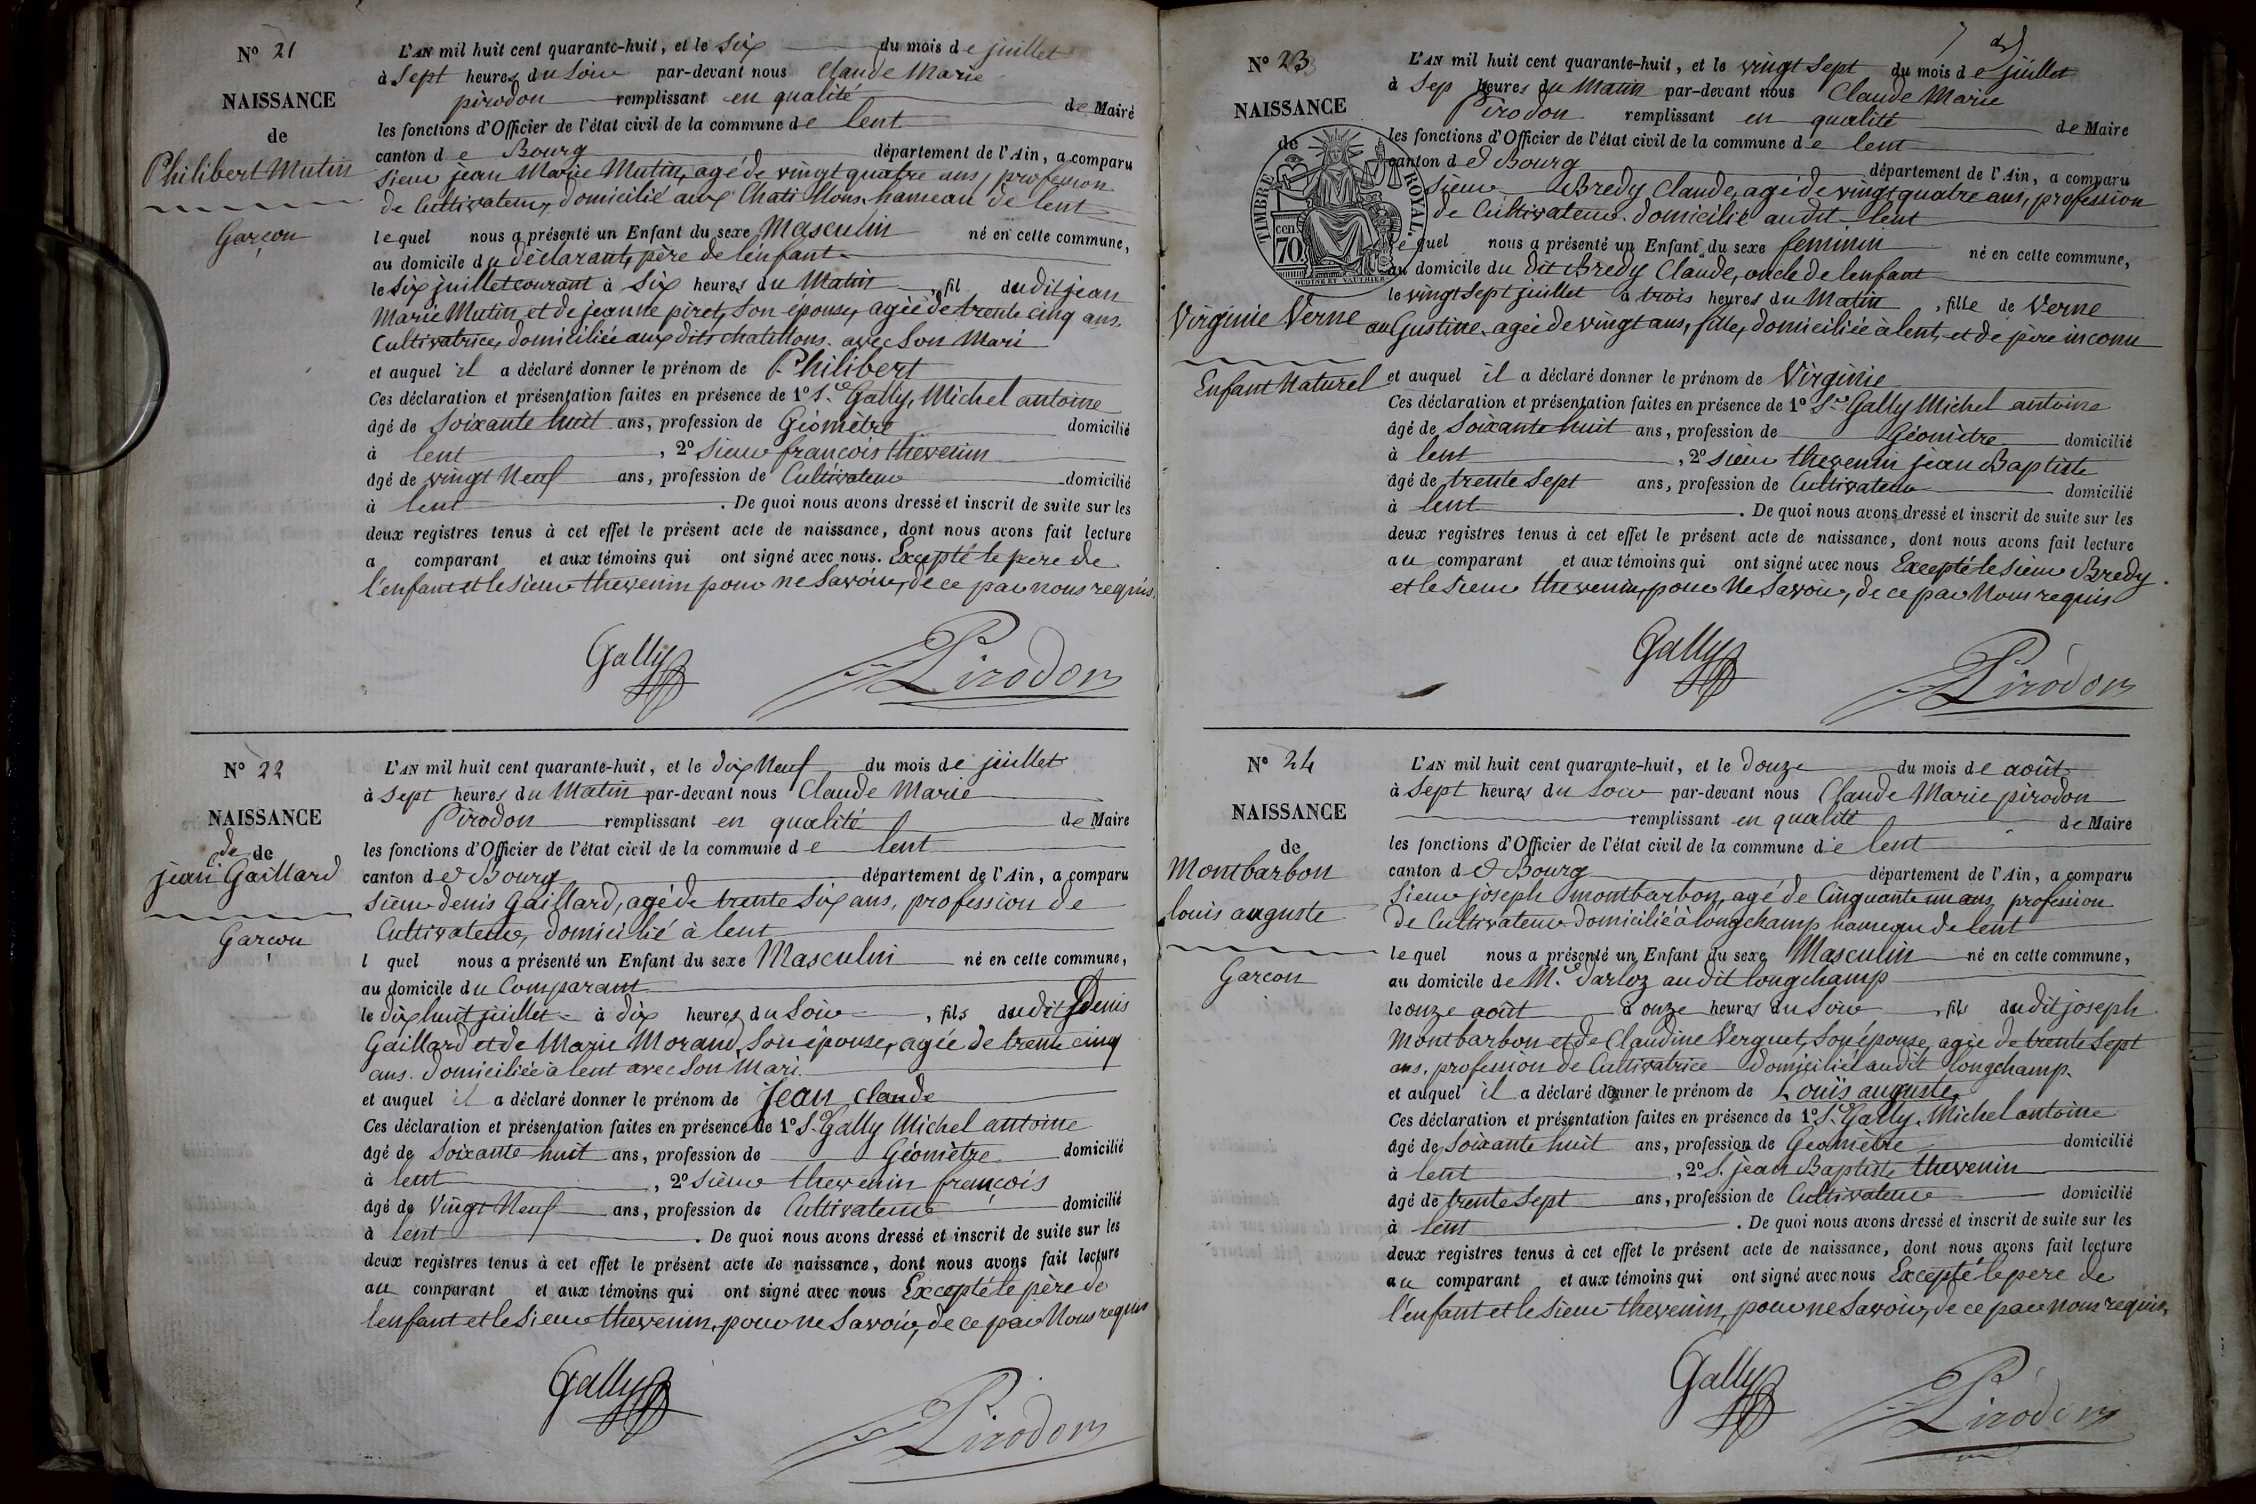 N° 21
NAISSANCE
de
Philibert Mutin
Garçon
L'AN mil huit cent quarante-huit, et le Six du mois de juillet
à Sept heures du Soir par-devant nous Claude Marie
pirodon remplissant en qualité de Maire
les fonctions d'Officier de l'état civil de la commune de lent
canton de Bourg département de l'Ain, a comparu
Sieur jean Marie Mutin, agé de vingt quatre ans, profession
de Cultivateur, domicilié aux Chatillons hameau de lent
lequel nous a présenté un Enfant du sexe Masculin né en cette commune,
au domicile du déclarant, père de l'enfant
le Six juillet courant à Six heures du Matin, fil du dit jean
Marie Mutin et de jeanne piret, Son épouse, agée de trente cinq ans.
Cultivatrice, domiciliée aux dits chatillons avec Son Mari
et auquel il a déclaré donner le prénom de Philibert
Ces déclaration et présentation faites en présence de 1° Sr Gally, Michel antoine
âgé de Soixante huit ans, profession de Géomètre domicilié
à lent, 2° Sieur françois thevenin
âgé de vingt Neuf ans, profession de Cultivateur domicilié
à lent. De quoi nous avons dressé et inscrit de suite sur les
deux registres tenus à cet effet le présent acte de naissance, dont nous avons fait lecture
a comparant et aux témoins qui ont signé avec nous. Excepté le père de
l'enfant et le Sieur thevenin pour ne Savoir, de ce par nous requis.
Gally Pirodon
N° 22
NAISSANCE
de de
jean Gaillard
Garçon
L'AN mil huit cent quarante-huit, et le dix Neuf du mois de juillet
à Sept heures du Matin par-devant nous Claude Marie
Pirodon remplissant en qualité de Maire
les fonctions d'Officier de l'état civil de la commune de lent
canton de Bourg département de l'Ain, a comparu
Sieur denis Gaillard, agé de trente Six ans, profession de
Cultivateur, domicilié à lent
l quel nous a présenté un Enfant du sexe Masculin né en cette commune,
au domicile du Comparant
le dix huit juillet à dix heures du Soir, fils du dit Denis
Gaillard et de Marie Morand, Son épouse, agée de trente cinq
ans. domiciliée à lent avec Son Mari.
et auquel il a déclaré donner le prénom de Jean Claude
Ces déclaration et présentation faites en présence de 1° Sr Gally Michel antoine
âgé de Soixante huit ans, profession de Géomètre domicilié
à lent, 2° Sieur thevenin françois
âgé de Vingt Neuf ans, profession de Cultivateur domicilié
à lent. De quoi nous avons dressé et inscrit de suite sur les
deux registres tenus à cet effet le présent acte de naissance, dont nous avons fait lecture
au comparant et aux témoins qui ont signé avec nous Excepté le père de
l'enfant et le Sieur thevenin, pour ne Savoir, de ce par Nous requis
Gally Pirodon
N° 23
NAISSANCE
de
TIMBRE ROYAL
cen 70
Virginie Verne
Enfant Naturel
L'AN mil huit cent quarante-huit, et le vingt Sept du mois de juillet
à Sep heures du Matin par-devant nous Claude Marie
Pirodon remplissant en qualité de Maire
les fonctions d'Officier de l'état civil de la commune de lent
canton de Bourg département de l'Ain, a comparu
Sieur Bredy Claude, agé de vingt quatre ans, profession
de Cultivateur domicilié au dit lent
lequel nous a présenté un Enfant du sexe feminin né en cette commune,
au domicile du dit Bredy Claude, oncle de l'enfant
le vingt Sept juillet à trois heures du Matin, fille de Verne
auGustine agée de vingt ans, fille, domiciliée à lent, et de père inconu
et auquel il a déclaré donner le prénom de Virginie
Ces déclaration et présentation faites en présence de 1° Sr Gally Michel antoine
âgé de Soixante huit ans, profession de Géomètre domicilié
à lent, 2° Sieur thevenin jean Baptiste
âgé de trente Sept ans, profession de Cultivateur domicilié
à lent. De quoi nous avons dressé et inscrit de suite sur les
deux registres tenus à cet effet le présent acte de naissance, dont nous avons fait lecture
au comparant et aux témoins qui ont signé avec nous Excepté le Sieur Bredy
et le Sieur thevenin, pour Ne Savoir, de ce par Nous requis
Gally Pirodon
N° 24
NAISSANCE
de
Montbarbon
louis auguste
Garcon
L'AN mil huit cent quarante-huit, et le douze du mois de août
à Sept heures du Soir par-devant nous Claude Marie pirodon
remplissant en qualité de Maire
les fonctions d'Officier de l'état civil de la commune de lent
canton de Bourg département de l'Ain, a comparu
Sieur joseph montbarbon, agé de Cinquante un ans, profession
de Cultivateur domicilié à longchamp hameau de lent
lequel nous a présenté un Enfant du sexe Masculin né en cette commune,
au domicile de Mr darloz au dit longchamp
le onze août à onze heures du Soir, fils du dit joseph
Montbarbon et de Claudine Verguet, Son épouse, agée de trente Sept
ans, profession de Cultivatrice domiciliée au dit longchamp.
et auquel il a déclaré donner le prénom de Louis auguste.
Ces déclaration et présentation faites en présence de 1° Sr Gally, Michel antoine
âgé de Soixante huit ans, profession de Géomètre domicilié
à lent, 2° S. jean Baptiste thevenin
âgé de trente Sept ans, profession de Cultivateur domicilié
à lent. De quoi nous avons dressé et inscrit de suite sur les
deux registres tenus à cet effet le présent acte de naissance, dont nous avons fait lecture
au comparant et aux témoins qui ont signé avec nous Excepté le père de
l'enfant et le Sieur thevenin, pour ne Savoir, de ce par nous requis
Gally Pirodon